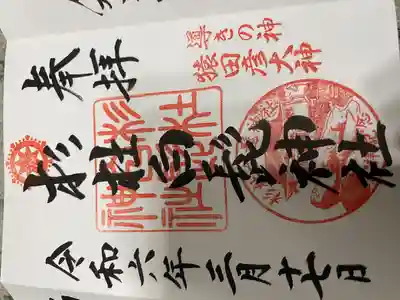 奉拝
導きの神
猿田彦大神
杉杜白髭神社
令和六年三月十七日